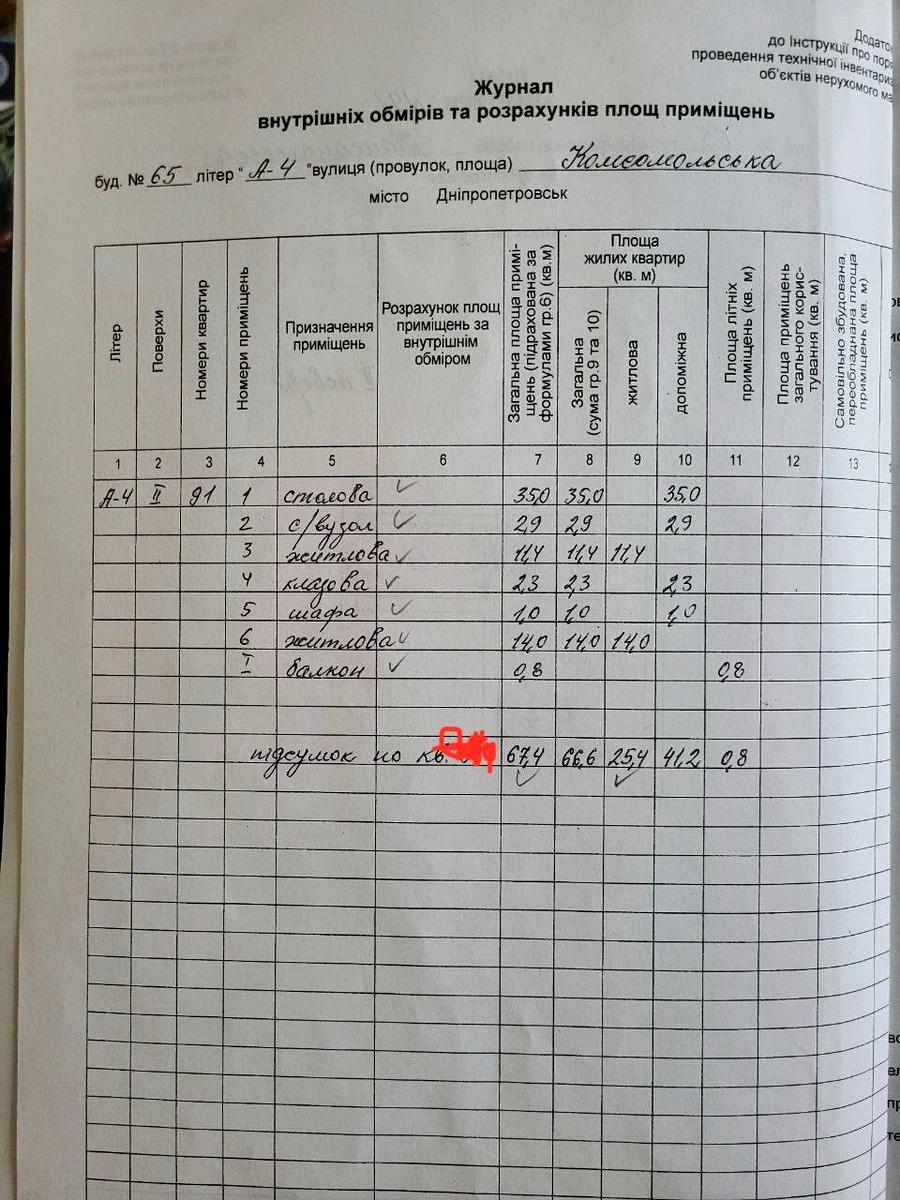 Додато
до Інструкції про поря
проведення технічної інвентариз
об'єктів нерухомого ма
Журнал
внутрішніх обмірів та розрахунків площ приміщень
буд. № 65 літер "А-4" вулиця (провулок, площа) Комсомольська
місто Дніпропетровськ
Літер
Поверхи
Номери квартир
Номери приміщень
Призначення приміщень
Розрахунок площ приміщень за внутрішнім обміром
Загальна площа приміщень (підрахована за формулами гр.6) (кв.м)
Площа жилих квартир (кв. м)
Загальна (сума гр.9 та 10)
житлова
допоміжна
Площа літніх приміщень (кв. м)
Площа приміщень загального користування (кв. м)
Самовільно збудована, переобладнана площа приміщень (кв. м)
1 2 3 4 5 6 7 8 9 10 11 12 13
А-4 II 91 1 столова 35,0 35,0 35,0
2 с/вузол 2,9 2,9 2,9
3 житлова 11,4 11,4 11,4
4 кладова 2,3 2,3 2,3
5 шафа 1,0 1,0 1,0
6 житлова 14,0 14,0 14,0
I балкон 0,8 0,8
підсумок по кв. 67,4 66,6 25,4 41,2 0,8